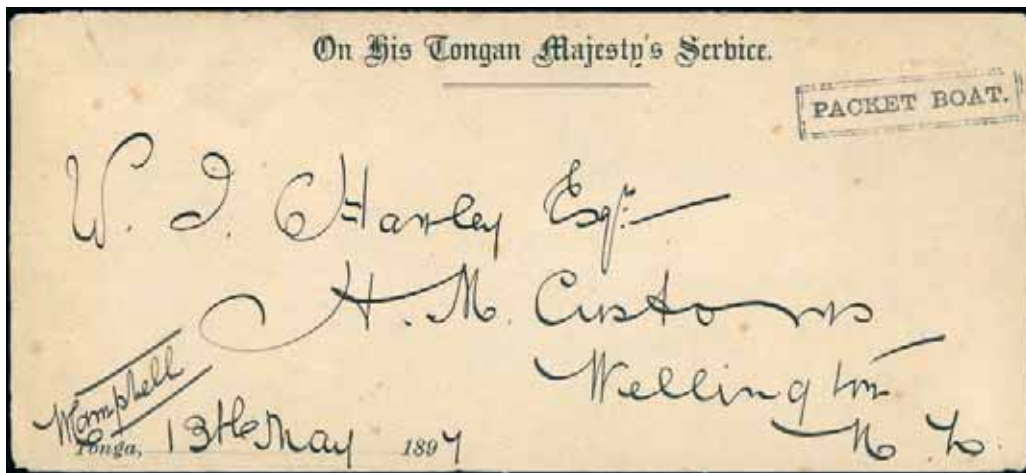 On His Tongan Majesty's Service.
PACKET BOAT.
W. J. Hawley Esqr.
H. M. Customs
Wellington
N Z.
WCampbell
Tonga, 13th May 1897